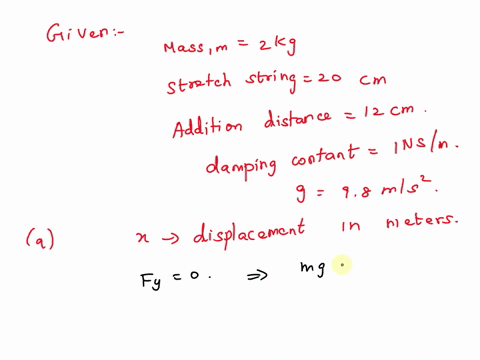 Given:-
Mass, m = 2kg
stretch string = 20 cm
Addition distance = 12 cm.
damping contant = 1NS/m.
g = 9.8 m/s².
(a) x → displacement in meters.
Fy = 0. ⇒ mg